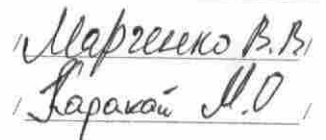 /Марченко В.В/
/Каракай М.О/